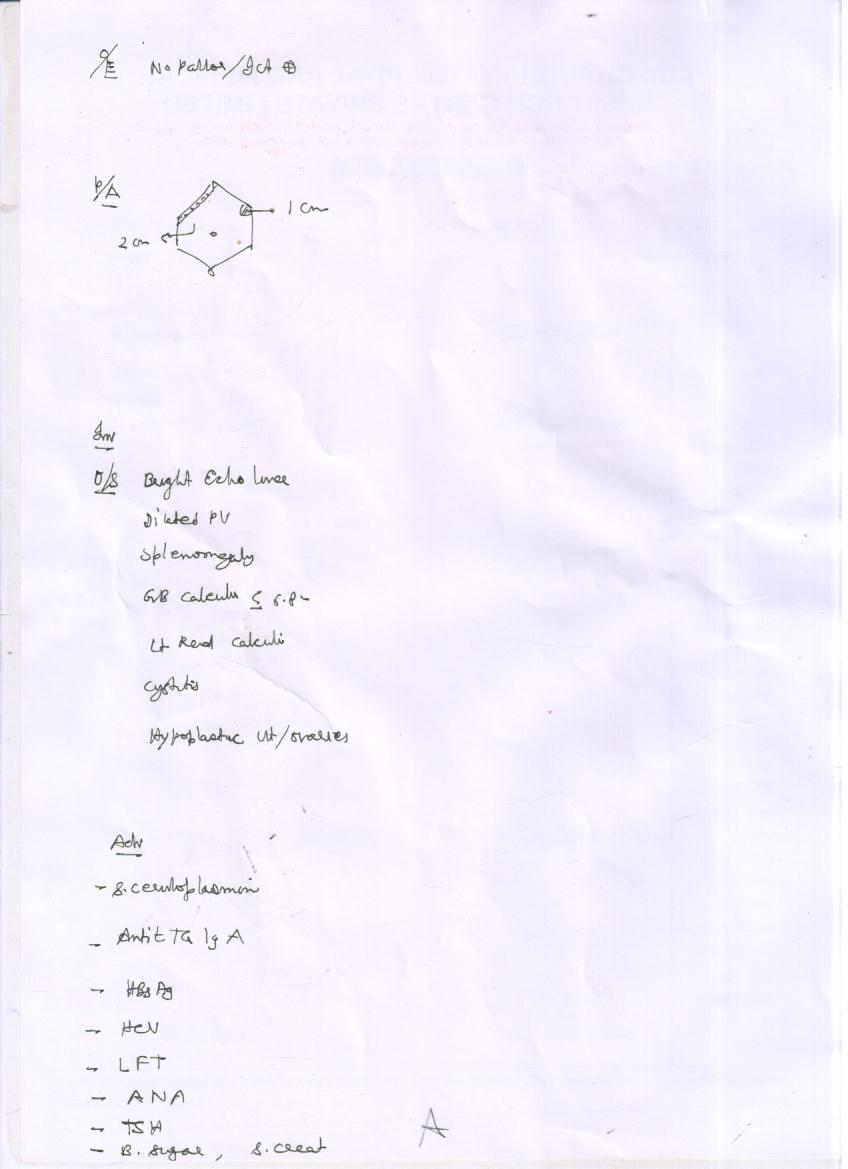 O/E No Pallor/Ict ⊕
P/A
1 cm
2 cm
Inv
U/S Bright Echo liver
Dilated PV
Splenomegaly
GB calculi
Lt Renal calculi
Cystitis
Hypoplastic Ut/ovaries
Adv
- S. ceruloplasmin
- Anti t TG Ig A
- HBs Ag
- HCV
- LFT
- ANA
- TSH
- B. Sugar, S. creat
A